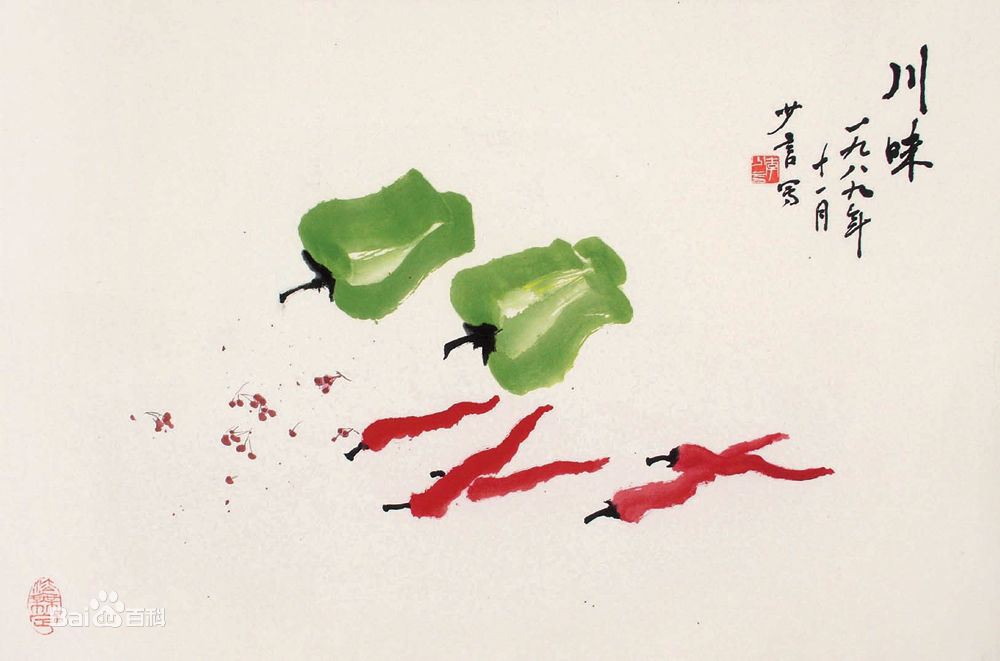 川味
一九八九年
十一月
少言写
李少言
Bai百科